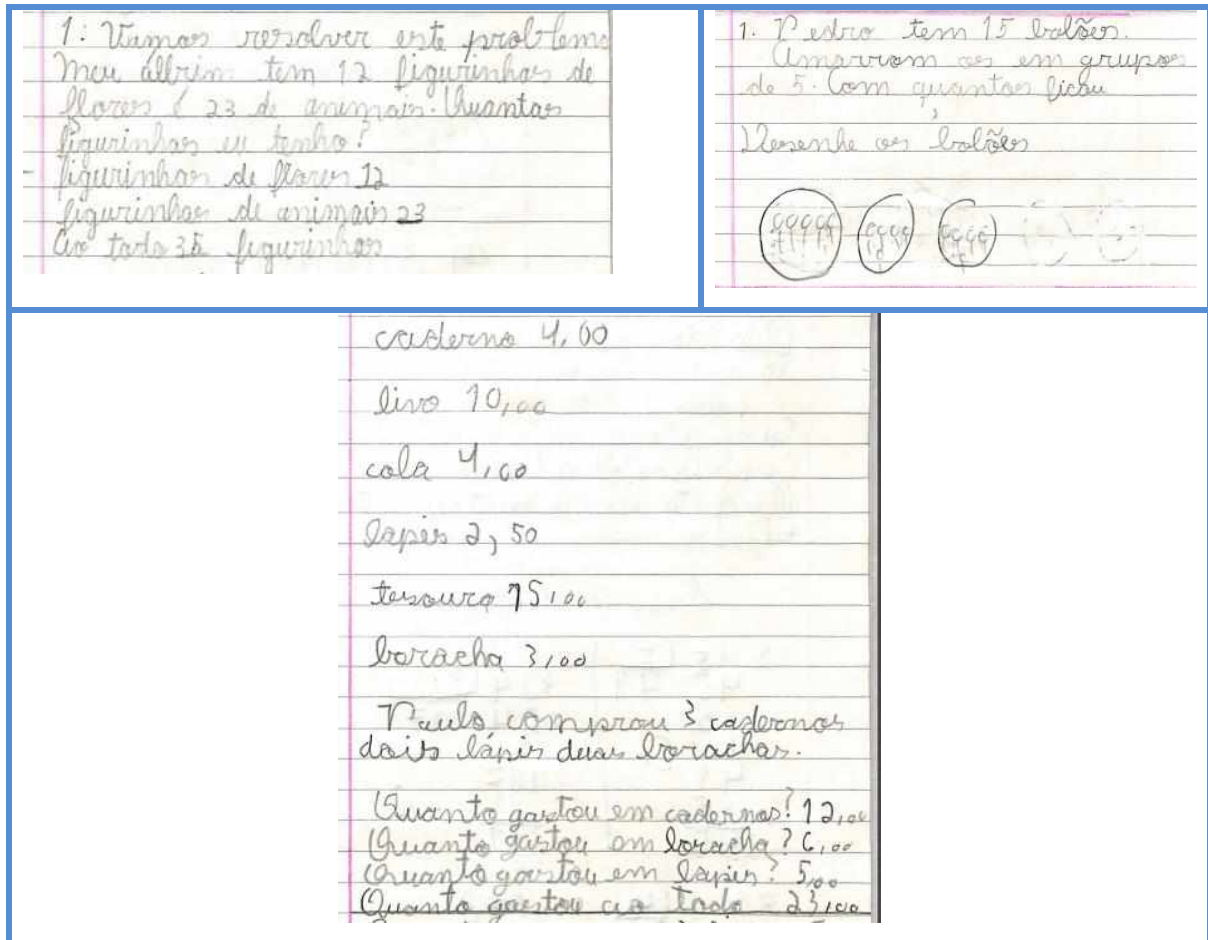 1: Vamos resolver este problema
Meu álbrim tem 12 figurinhas de
flores e 23 de animais. Quantas
figurinhas eu tenho?
- figurinhas de flores 12
figurinhas de animais 23
Ao todo 35 figurinhas
1. Pedro tem 15 balões.
Amarrom os em grupos
de 5. Com quantos ficou
Desenhe os balões
caderno 4,00
livo 10,00
cola 4,00
lapis 2,50
tesoura 15,00
boracha 3,00
Paulo comprou 3 cadernos
dois lápis duas borachas.
Quanto gastou em cadernos? 12,00
Quanto gastou em boracha? 6,00
Quanto gastou em lapis? 5,00
Quanto gastou ao todo 23,00